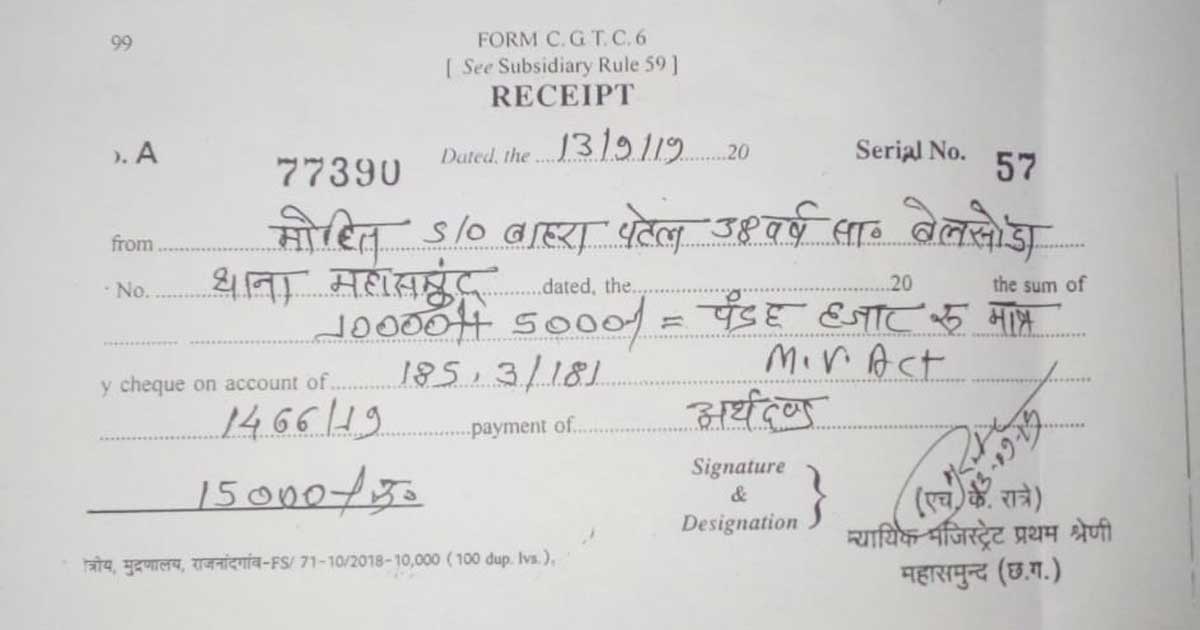 99
FORM C. G. T. C. 6
[ See Subsidiary Rule 59 ]
RECEIPT
). A 77390 Dated, the 13/9/19 20 Serial No. 57
from मोहित S/O बाहरा पटेल 38 वर्ष सा० बेलसोंडा
No. थाना महासमुंद dated, the 20 the sum of
10000/+ 5000/ = पंद्रह हजार रु मात्र
y cheque on account of 185, 3/181 M.V. Act
1466/19 payment of अर्थदण्ड
15000/रु०
Signature
&
Designation
13-09-19
(एच. के. रात्रे)
न्यायिक मजिस्ट्रेट प्रथम श्रेणी
महासमुन्द (छ.ग.)
त्रीय, मुद्रणालय, राजनांदगांव-FS/ 71-10/2018-10,000 ( 100 dup. lvs.),